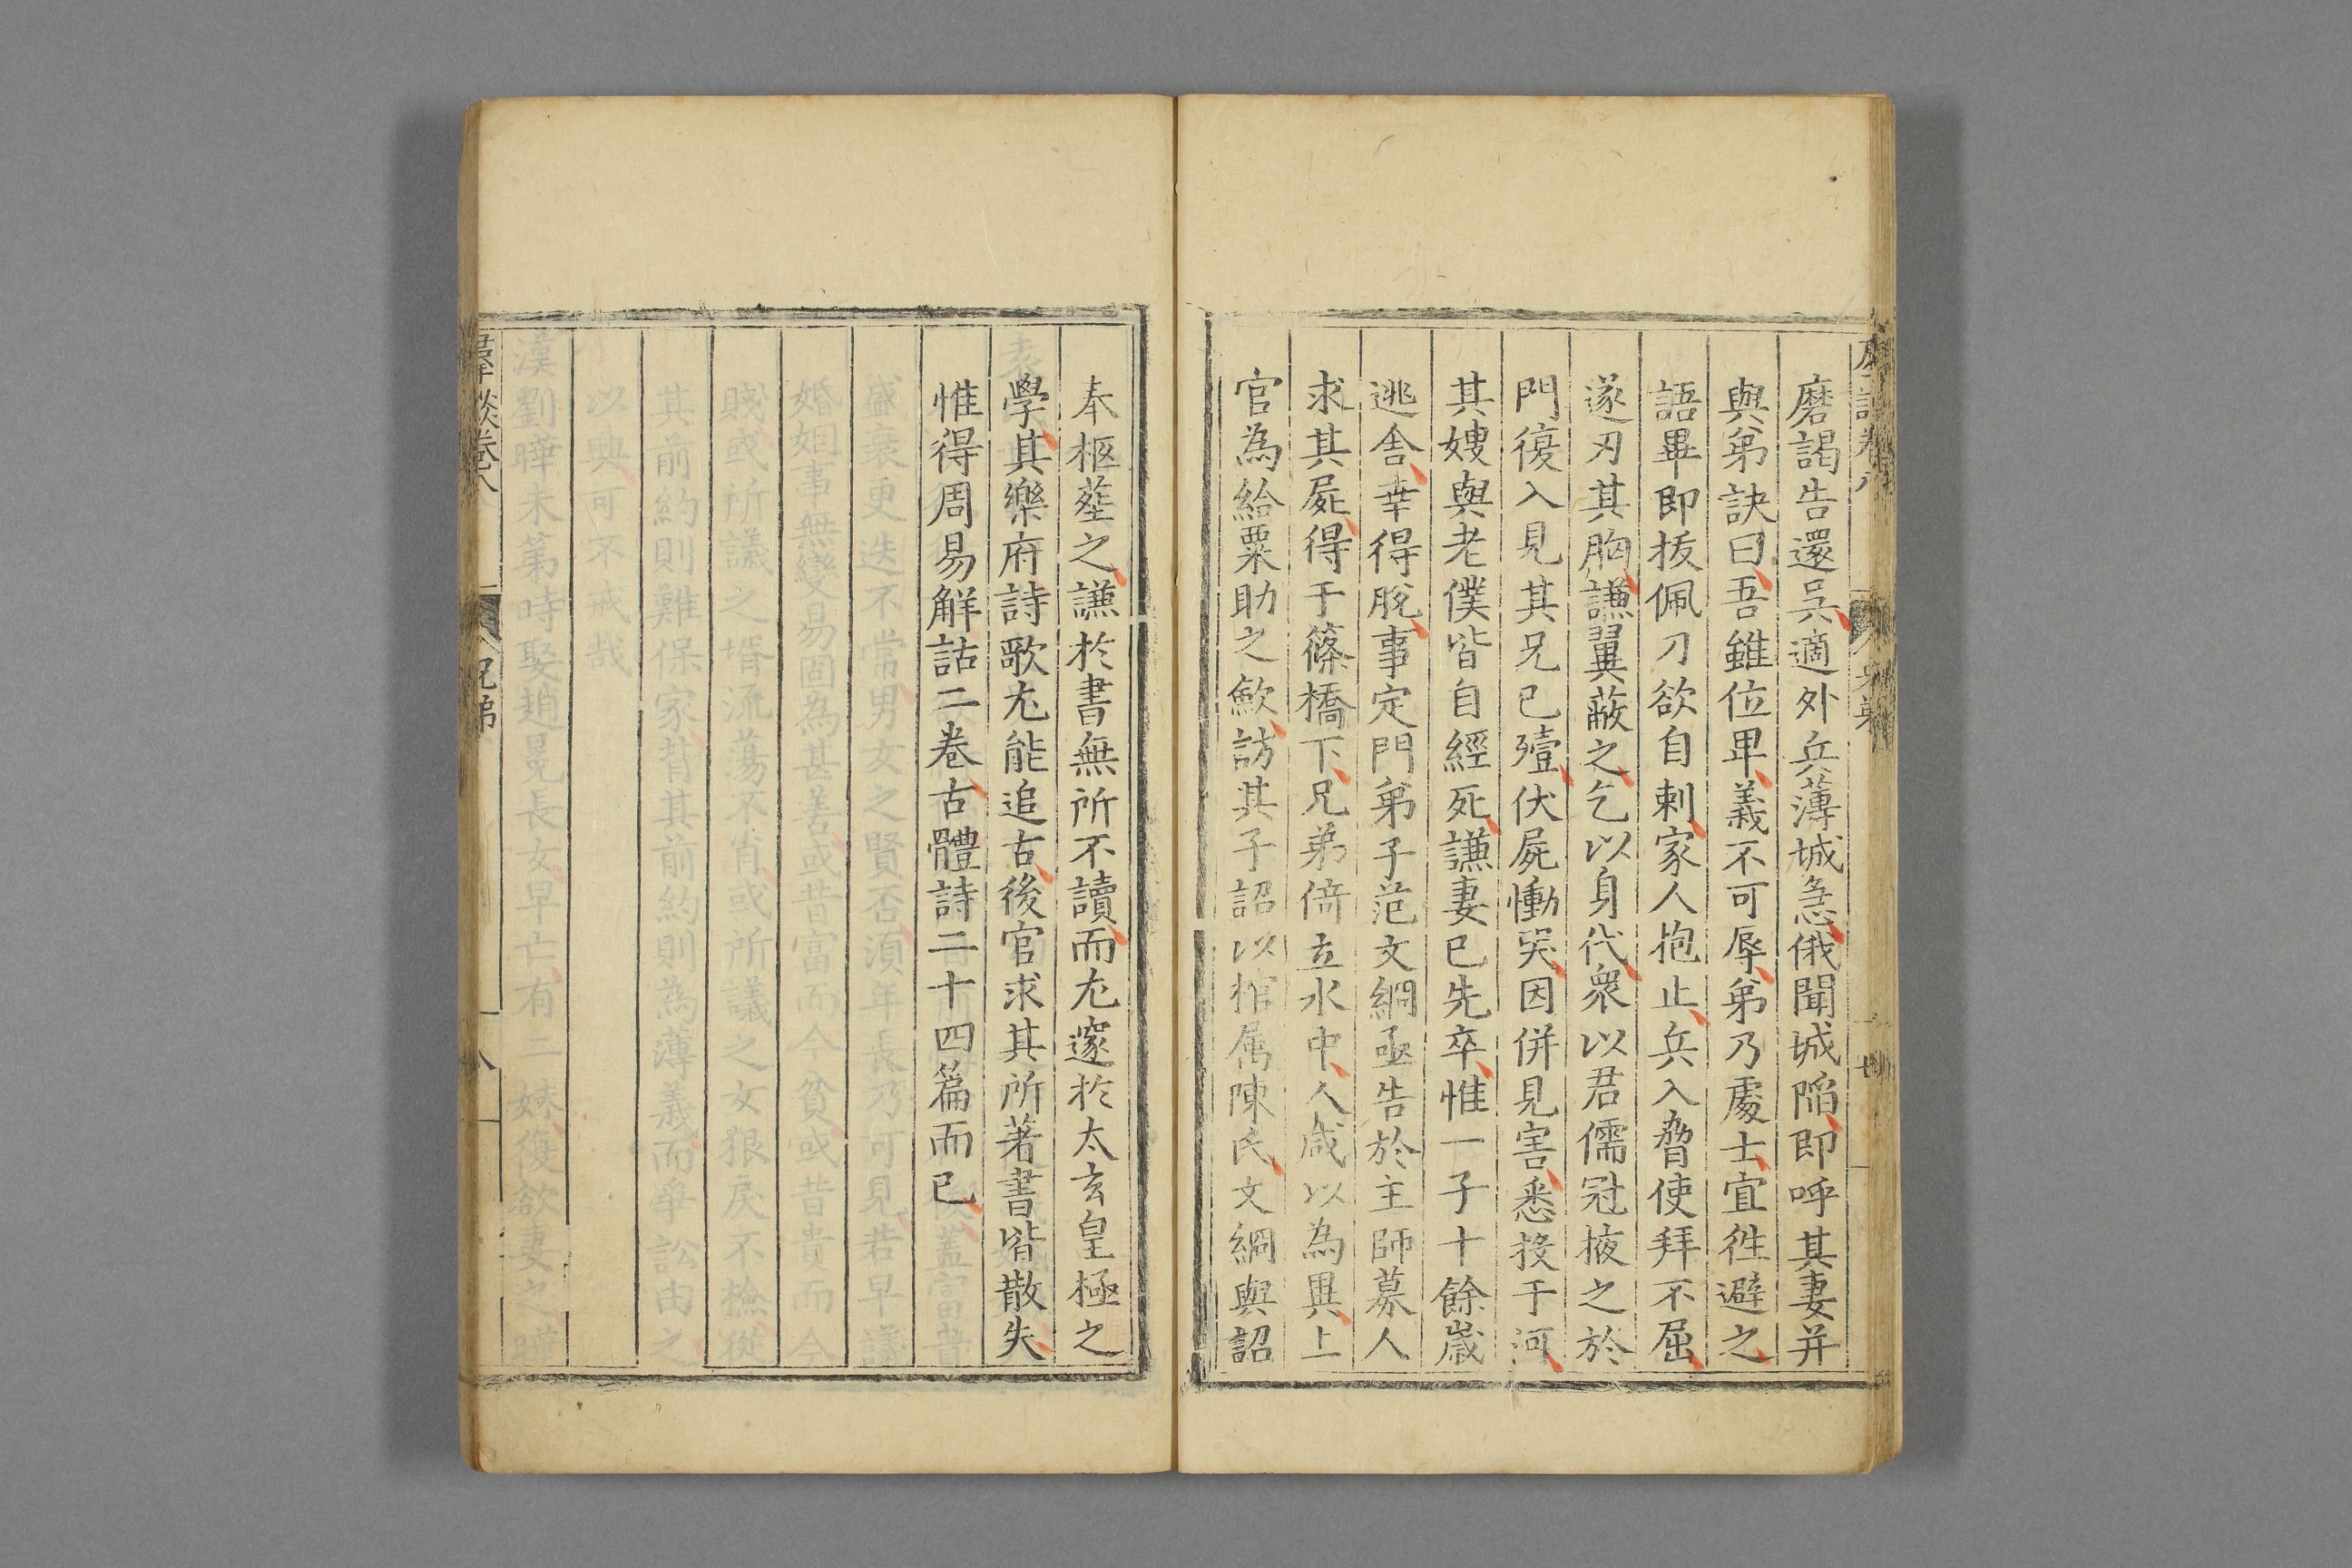 磨謁告還吳適外兵薄城急俄聞城陷即呼其妻并
與弟訣曰吾雖位卑義不可辱弟乃處士宜徃避之
語畢即拔佩刀欲自刺家人抱止兵入脅使拜不屈
遂刃其胸謙翼蔽之乞以身代衆以君儒冠掖之於
門復入見其兄已殪伏屍慟哭因併見害悉投于河
其嫂與老僕皆自經死謙妻已先卒惟一子十餘歲
逃舍幸得脫事定門弟子范文綱亟告於主師募人
求其屍得于篠橋下兄弟倚立水中人咸以為異上
官為給粟助之歛訪其子詔以棺属陳氏文綱與詔
奉柩塟之謙於書無所不讀而尤邃於太玄皇極之
學其樂府詩歌尤能追古後官求其所著書皆散失
惟得周易解詁二卷古體詩二十四篇而已
羣談卷八 兄弟 八